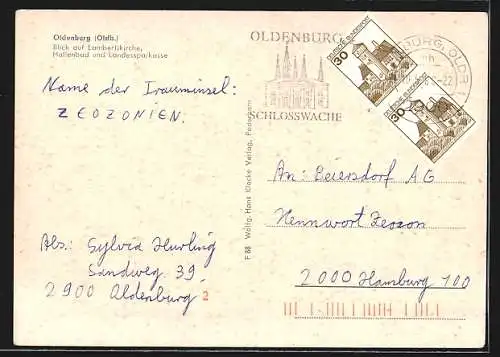 Oldenburg (Oldb.)
Blick auf Lambertikirche,
Hallenbad und Landessparkasse
Name der Trauminsel:
ZEOZONIEN.
Abs: Sylvia Hurling
Sandweg. 39
2900 Oldenburg 2
F 88 Wolfg. Hans Klocke Verlag, Paderborn
OLDENBURG
SCHLOSSWACHE
30 DEUTSCHE BUNDESPOST
30 DEUTSCHE BUNDESPOST
An: Beiersdorf AG
Kennwort Zeozon
2000 Hamburg 100